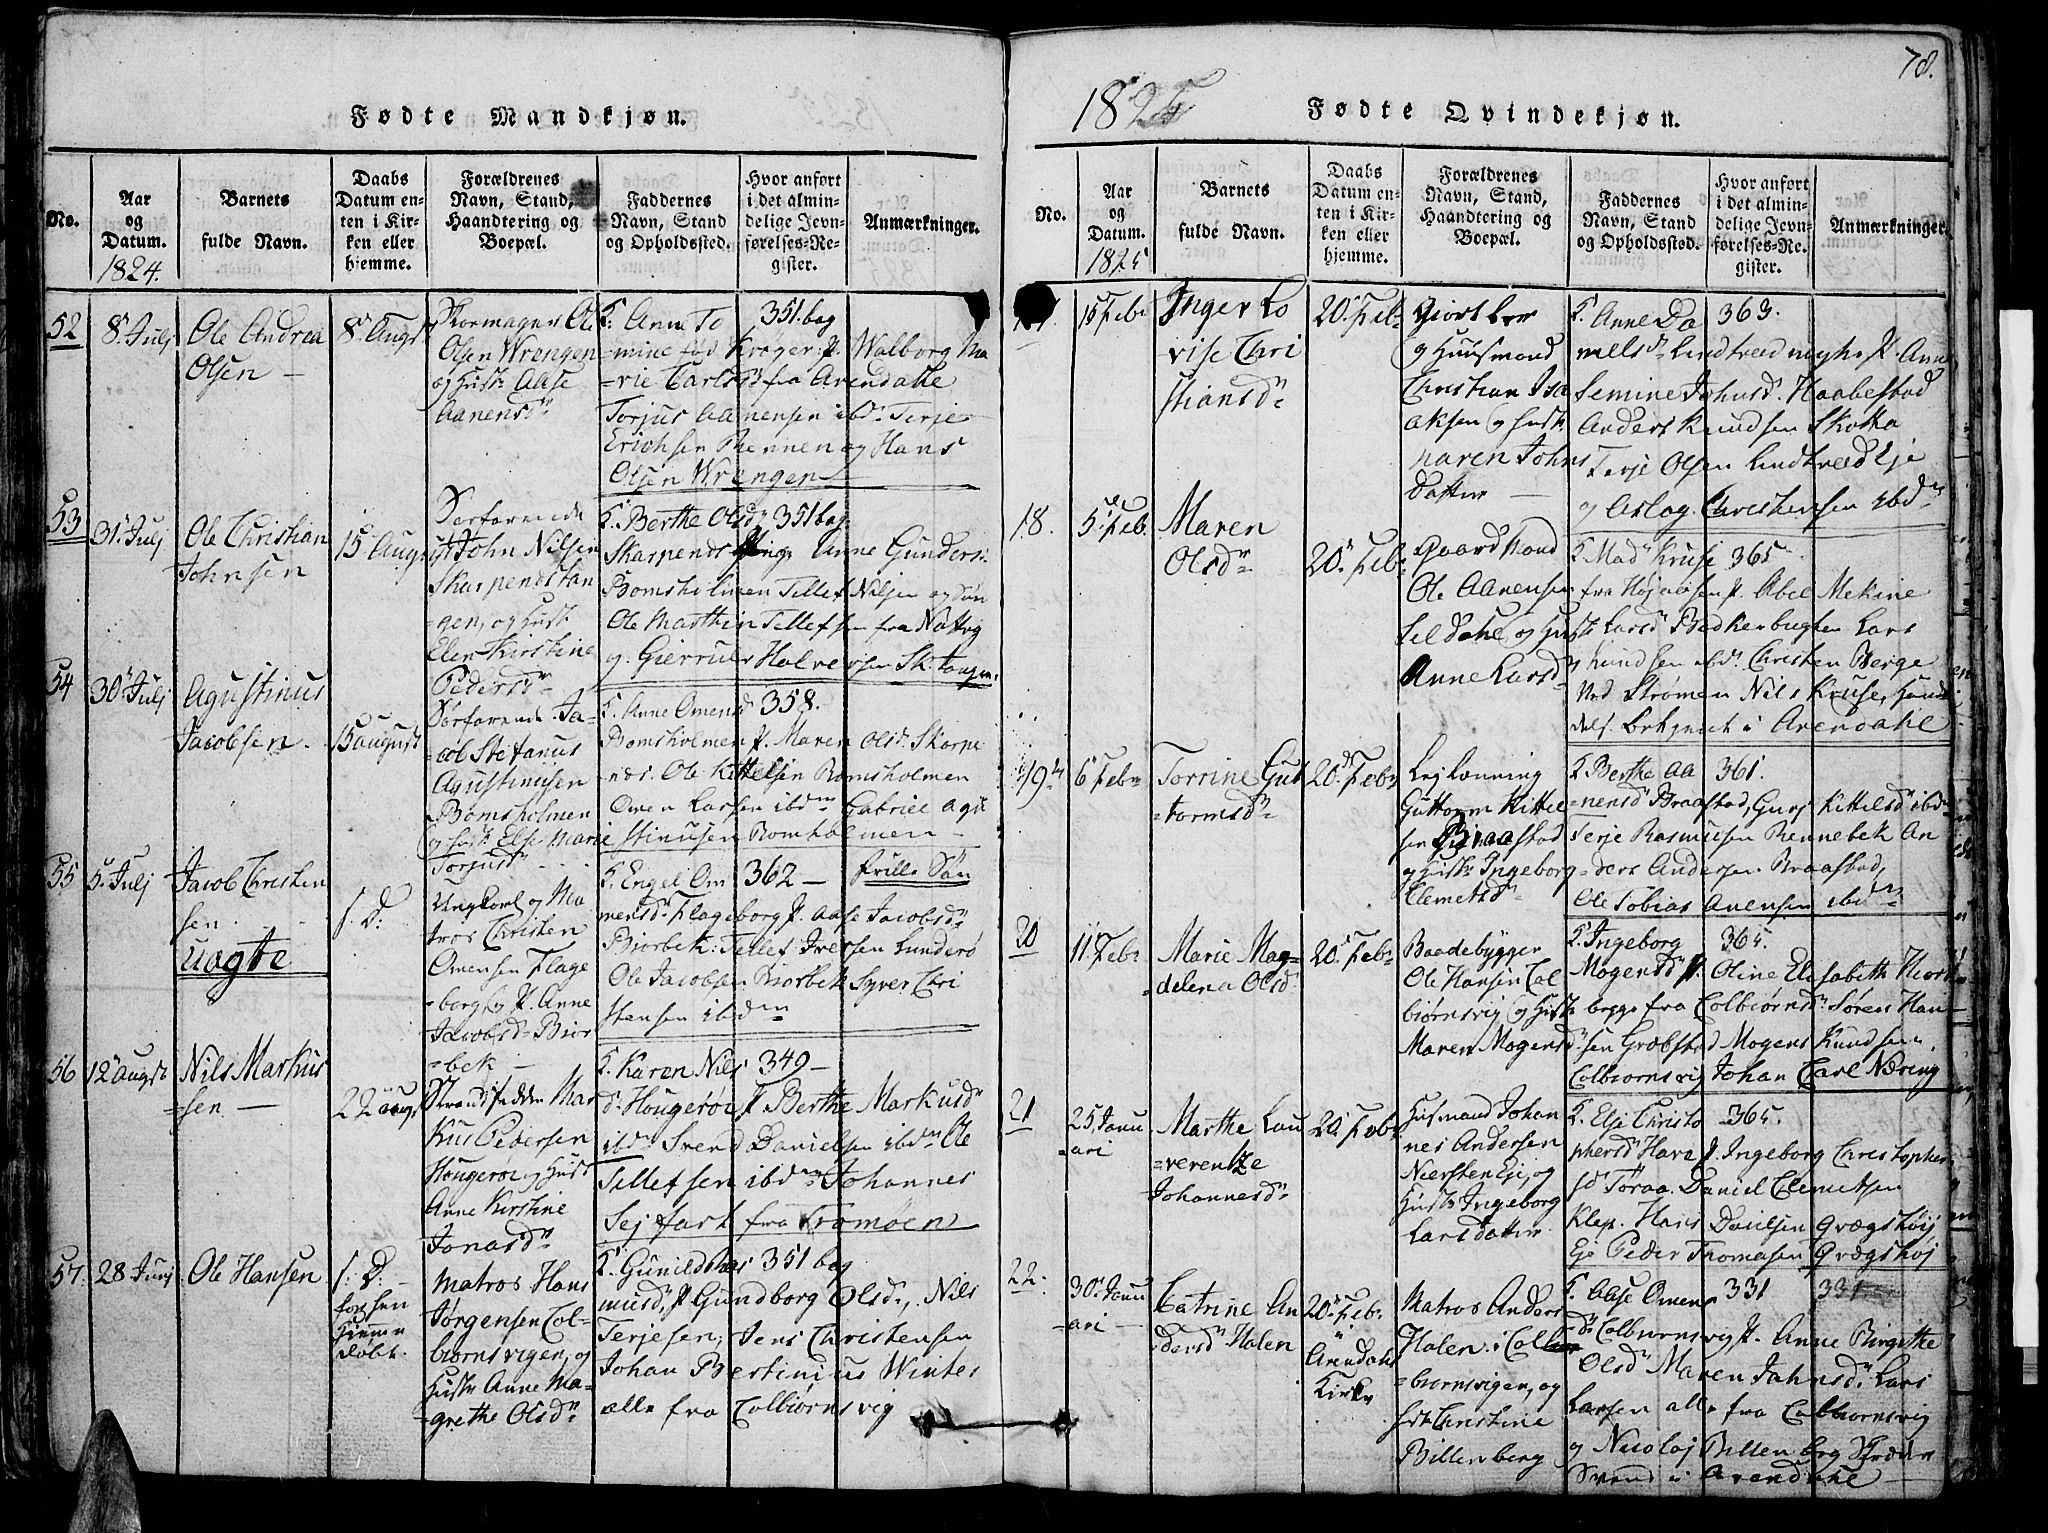 78.
Fødte Mandkjøn.
No.
Aar og Datum.
1824.
Barnets fulde Navn.
Daabs Datum enten i Kirken eller hjemme.
Forældrenes Navn, Stand, Haandtering og Boepæl.
Faddernes Navn, Stand og Opholdssted.
Hvor anført i det almindelige Jevnførelses-Register.
Anmærkninger.
52
8 Julj
Ole Andrea
Olsen
8 Augst
Skomager Ole
Olsen Wrengen
og Hust: Aase
Aanensdr
F. Anne To 351. bag
mine fød Krøger. P. Walborg Ma
=rie Carlsdr fra Arendahl
Torjus Aamensen ibd. Terje
Erichsen Rennen og Hans
Olsen Wrengen
53
31 Julj
Ole Christian
Johnsen
15 Aug
Søefarende
John Nilsen
Skarpendstan
gen, og Hust
Elen Kirstine
Pedersdr
F. Berthe Olsdr 351 bag.
Skarpends Anne Gunders:
Bomsholmen Tellef Nilsen og Søn
Ole Marthin Tellefsen fra Nattvig
g. Gierrulv Halvorsen Sk:tangen.
54
30 Julj
Agustinus
Jacobsen.
15 august
Søefarende Ja-
=cob Stefanus
Agustinusen
Bomsholmen
og Hust Else Marie
Torjusdr
F. Anne Omensd 358.
Bomsholmen P. Maren Olsd. Skarpe
næs. Ole Kittelsen Romsholmen
Omen Larsen ibdm Gabriel Agu
stinusen Romholmen
55
5. Julj
Jacob Christen
sen
uægte
S. D:
Ungkarl og Ma
tros Christen
Omensen Flage
=borg og P. Anne
Jacobsd Bior
=bek
F. Engel Om 362 —
mensd Flageborg P. Aase Jacobsdr
Biorbek: Tellef Iversen Lunderø
Ole Jacobsen Biorbek Syver Chri
stensen ibdm
frille Søn
56
12 augst
Nils Markus
=sen
22 aug
Strandsidder Mar
kus Pedersen
Hougerøe og Hust
Anne Kirstine
Jonasdr
F. Karen Nils 349 —
d. Hougerøe P. Berthe Markusd
ibd. Svend Danielsen ibdm Ole
Tellefsen ibdm Johannes
Sejfart fra Tromøen
57.
28 Junj
Ole Hansen
S: D: —
forhen
hiemme
døbt.
Matros Hans
Jørgensen Col-
biornsvigen, og
Hust: Anne Ma-
=grethe Olsdr
F. Gunild Ras 351 bag
musd, P. Gundborg Olsd., Nils
Terjesen, Jens Christensen
Johan Bertinius Winter
alle fra Colbiørnsvig
1825
Fødte Qvindekjøn.
No.
Aar og Datum.
1825
Barnets fulde Navn.
Daabs Datum enten i Kirken eller hjemme.
Forældrenes Navn, Stand, Haandtering og Boepæl.
Faddernes Navn, Stand og Opholdssted.
Hvor anført i det almindelige Jevnførelses-Register.
Anmærkninger.
Febr
Inger Lo
vise Chri
stiansdr
20 Febr
og Huusmand
Christian Isa
aksen og Hust
Maren Johns
datter
F. Anne Da 363.
P. Anne
Semine Johnsd. Haabestad
Anders Knudsen Skotta
Terje Olsen Lindtveed Eje
og Aslag Christensen ibdm
18.
5 Feb.
Maren
Olsdr
20. Febr
Gaardmand
Ole Aanensen
Seldahl og Hust
Anne Larsdr
F. Mad Kruse 365
fra Højaasen P. Abel Mekine
Larsd Bedkerbugten Lars
Knudsen ibd. Christen Berge
ved Strømen Nils Kruse, Hand
dels betjent i Arendahl
19
6 Febr
Torrine Gut
=tormsdr
20. Febr
Guttorm Kittel
sen Braastad
og Hust: Ingeborg
Clemetsdr
F. Berthe Aa 361
=nensd Braastad, Gurj Kittelsd ibdm
Terje Rasmusen Rennebek An
=ders Andersen Braastad,
Ole Tobias Anensen ibdm
20
11 Febr
Marie Mag=
=delena Olsd
20. Febr
Baadebygger
Ole Hansen Col
biørnsvig og Hust
Maren Mogensd
F. Ingeborg 365.
Mogensd P. Oline Elisabeth
begge fra Colbiørnsd. Søren Han
sen Græbstad Mogens Knudsen
Colbiornsvig Johan Carl Næring
21
25 Janu
ari
Marthe Lau
=verentze
Johannesdr
20 Febr
Huusmand Johan
nes Andersen
Næersten Eje, og
Hust: Ingeborg
Larsdatter
F. Else Christo 365.
phersd Have P. Ingeborg Christopher
sd Toraa. Daniel Clemetsen
Klep. Hans Danielsen Grægshøj
Eje Peder Thomasen Grægshøj
22.
30 Janu
ari
Catrine An
dersd Halen
20 Febr.
i
Arendahl
Kirke
Matros Anders
Halen i Col
=biornsvigen, og
Hust Christine
Billenberg
F. Aase Omens 331 331
d. Colbiornsvig, P. Anne Birgithe
Olsd Maren Jahnsd. Lars
Larsen alle fra Colbiornsvig
og Nicolaj Billenberg Skræder
Svend i Arendahl